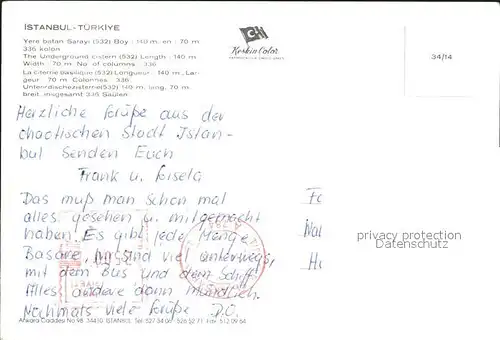 İSTANBUL - TÜRKİYE
Yere batan Sarayı (532) Boy : 140 m. en : 70 m.
336 kolon
The Underground cistern (532) Length : 140 m.
Width : 70 m. No. of columns : 336
La citerne Basilique (532) Longueur : 140 m., Lar-
geur : 70 m. Colonnes : 336
Unterirdischezisterne(532) 140 m. lang, 70 m.
breit, insgesamt 336 Säulen
Keskin Color
34/14
Herzliche Grüße aus der
chaotischen Stadt Istan-
bul senden Euch
Frank u. Gisela
Das muß man schon mal
alles gesehen u. mitgemacht
haben. Es gibt jede Menge
Basare, wir sind viel unterwegs,
mit dem Bus und dem Schiff.
Alles andere dann mündlich.
Nochmals viele Grüße D.O.
Fa
H
privacy protection
Datenschutz
Ankara Caddesi No. 98 34410 - İSTANBUL Tel: 527 54 06 - 526 52 71 Fax: 512 09 64